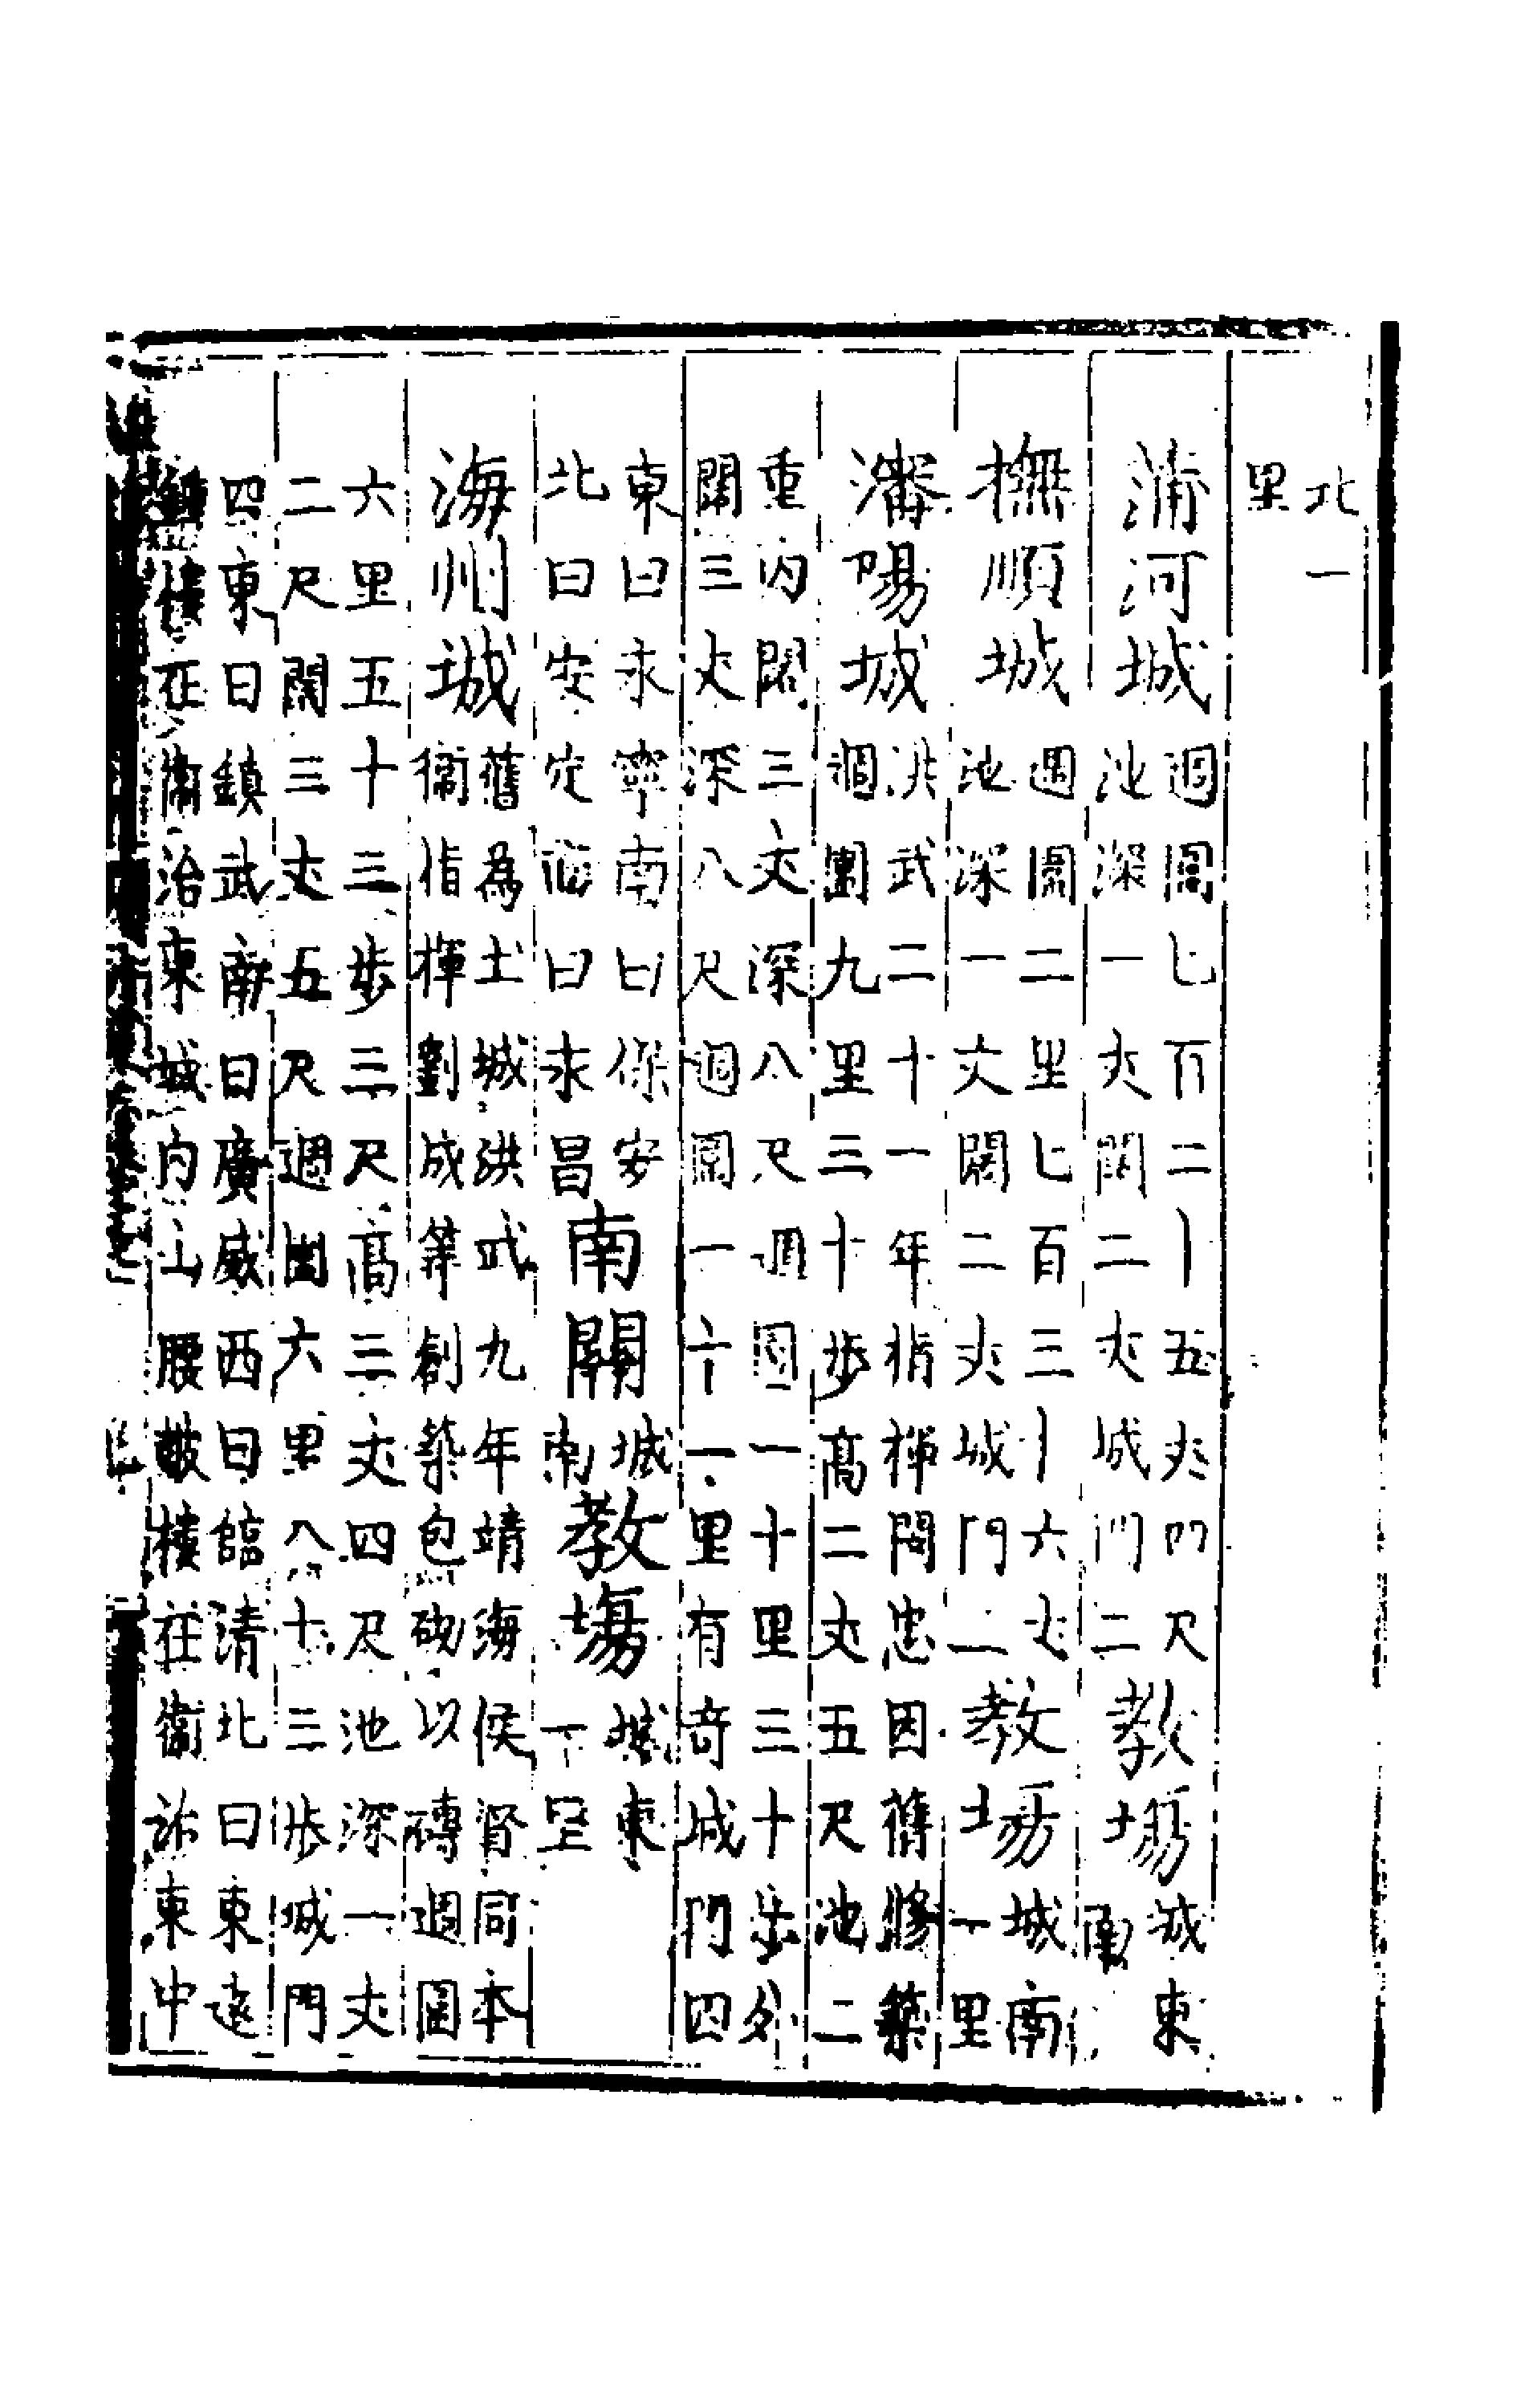 北一
里
蒲河城
週圍七百二十五丈四尺
池深一丈闊二丈城門二
教場
城東
南
撫順城
週圍二里七百三十六丈
池深一丈闊二丈城門一
教場
城南
一里
瀋陽城
洪武二十一年指揮閔忠因舊脩築
週圍九里三十步高二丈五尺池二
重內闊三丈深八尺週圍一十里三十步外
闊三丈深八尺週圍一十一里有奇城門四
東曰永寧南曰保安
北曰安定西曰永昌
南關
城
南
教場
城東
一里
海州城
舊為土城洪武九年靖海侯督同本
衛指揮劉成等創築包砌以磚週圍
六里五十三步三尺高三丈四尺池深一丈
二尺闊三丈五尺週圍六里八十三步城門
四東曰鎮武南曰廣威西曰臨清北曰來遠
鐘樓在衛治東城內山腰鼓樓在衛治東中